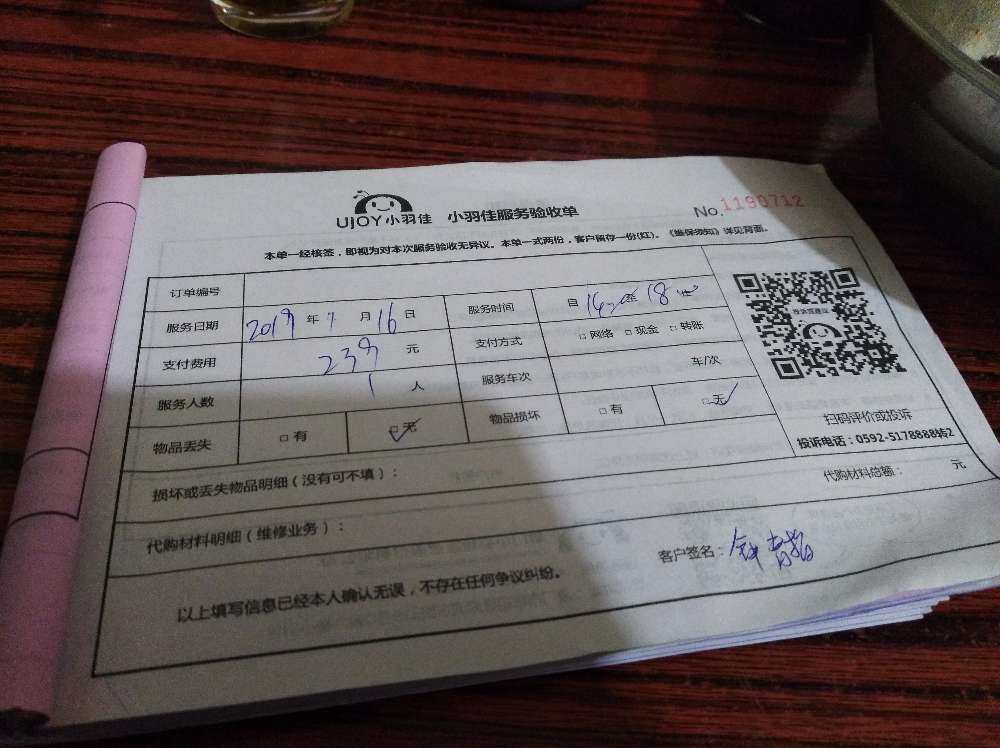 UJOY小羽佳 小羽佳服务验收单 No.1190712
本单一经核签，即视为对本次服务验收无异议。本单一式两份，客户留存一份(红)。《维保须知》详见背面。
订单编号
服务日期 2019年7月16日 服务时间 自 至18
支付费用 239元 支付方式 □网络 □现金 □转账
服务人数 1人 服务车次 车/次
物品丢失 □有 □无 物品损坏 □有 □无
扫码评价或投诉
投诉电话：0592-5178888转2
损坏或丢失物品明细（没有可不填）：
代购材料明细（维修业务）： 代购材料总额： 元
以上填写信息已经本人确认无误，不存在任何争议纠纷。 客户签名：